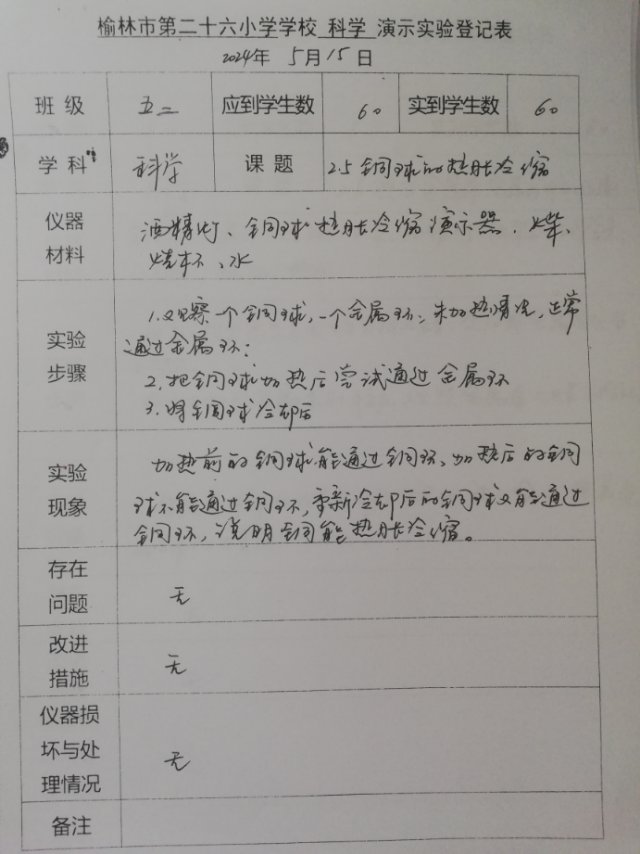 榆林市第二十六小学学校 科学 演示实验登记表
2024年 5月15日
班级 五二 应到学生数 60 实到学生数 60
学科 科学 课题 2.5 铜球的热胀冷缩
仪器材料 酒精灯、铜球热胀冷缩演示器、火柴、
烧杯、水
实验步骤 1.观察一个铜球,一个金属环,未加热情况,正常
通过金属环;
2.把铜球加热后尝试通过金属环
3.将铜球冷却后
实验现象 加热前的铜球能通过铜环,加热后的铜
球不能通过铜环,重新冷却后的铜球又能通过
铜环,说明铜能热胀冷缩。
存在问题 无
改进措施 无
仪器损坏与处理情况 无
备注